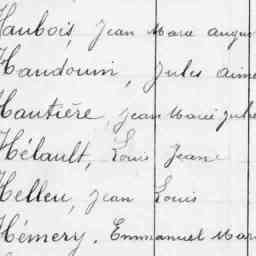 Haubois, Jean Marie Augus
Haudouin, Jules Aimé
Hautière, Jean Marie Jule
Hélault, Louis Jean
Helleu, Jean Louis
Hémery, Emmanuel Mari